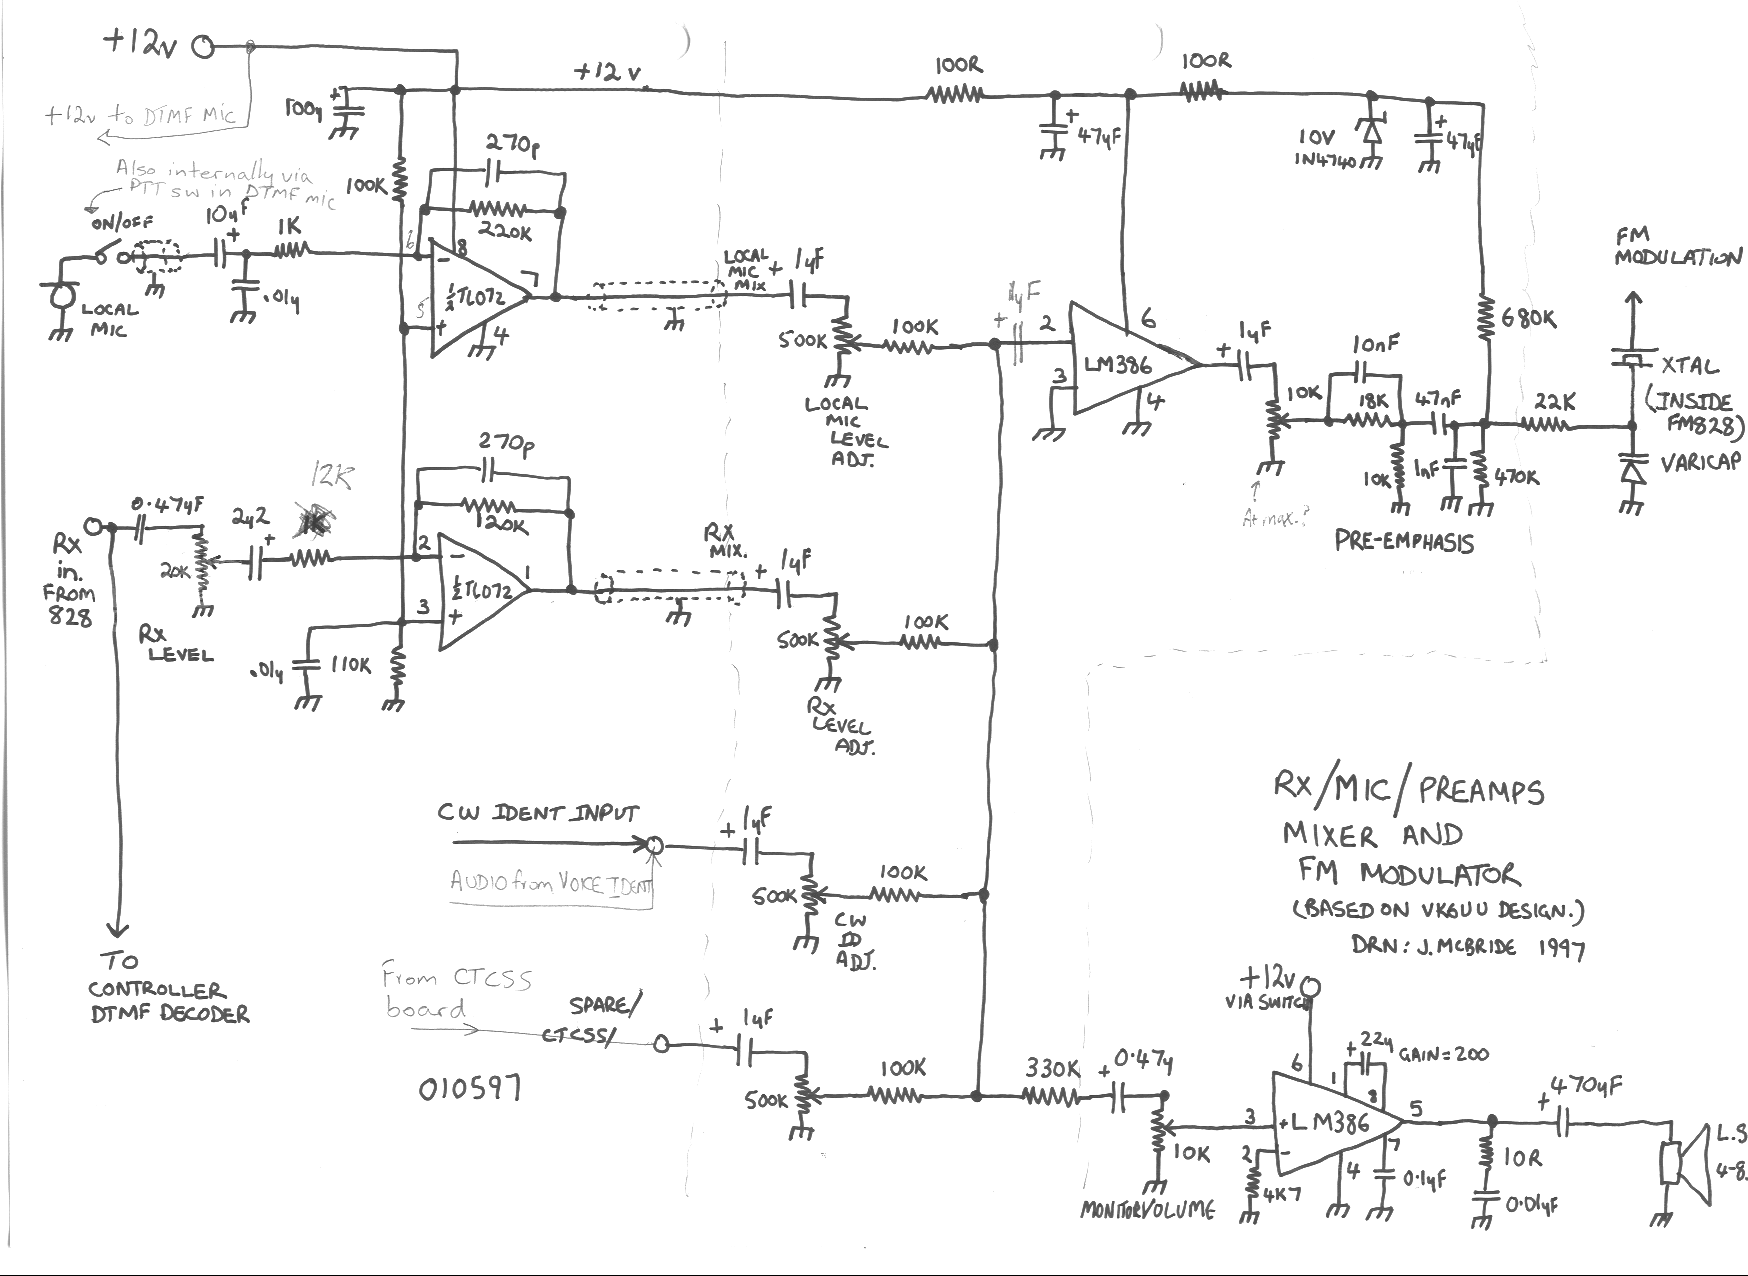 +12v
+12v to DTMF MIC
Also internally via
PTT sw in DTMF mic
ON/OFF
10uF
+
1K
.01u
LOCAL
MIC
+
100u
100K
270p
220K
6
8
-
½TL072
7
5
+
4
+12v
LOCAL
MIC
MIX
+
1uF
500K
LOCAL
MIC
LEVEL
ADJ.
100K
100R
+
47uF
100R
10V
1N4740
+
47uF
1uF
+
2
6
LM386
3
4
+
1uF
10K
At max.?
10nF
18K
47nF
10K
1nF
470K
680K
22K
PRE-EMPHASIS
FM
MODULATION
XTAL
(INSIDE
FM828)
VARICAP
0.47uF
Rx
in.
FROM
828
20K
Rx
LEVEL
2u2
+
12K
1K
270p
120K
2
-
½TL072
1
3
+
.01u
110K
Rx
MIX.
+
1uF
500K
Rx
LEVEL
ADJ.
100K
CW IDENT INPUT
AUDIO from VOICE IDENT
+
1uF
500K
CW
ID
ADJ.
100K
TO
CONTROLLER
DTMF DECODER
From CTCSS
board
SPARE/
CTCSS/
+
1uF
500K
100K
010597
330K
+
0.47u
10K
MONITOR VOLUME
RX/MIC/PREAMPS
MIXER AND
FM MODULATOR
(BASED ON VK6UU DESIGN.)
DRN: J.MCBRIDE 1997
+12v
VIA SWITCH
6
1
+
22u
GAIN=200
8
3
+
LM386
5
2
-
4K7
4
7
0.1uF
10R
0.01uF
+
470uF
L.S
4-8.